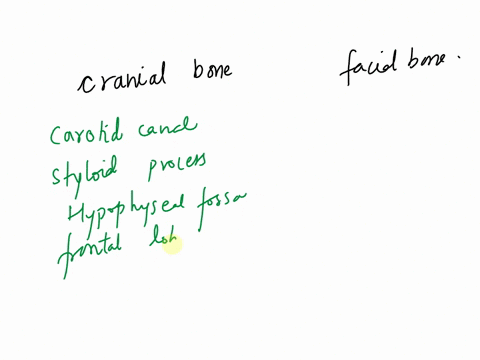 cranial bone
facial bone.
Carotid canal
Styloid process
Hypophyseal fossa
frontal lob